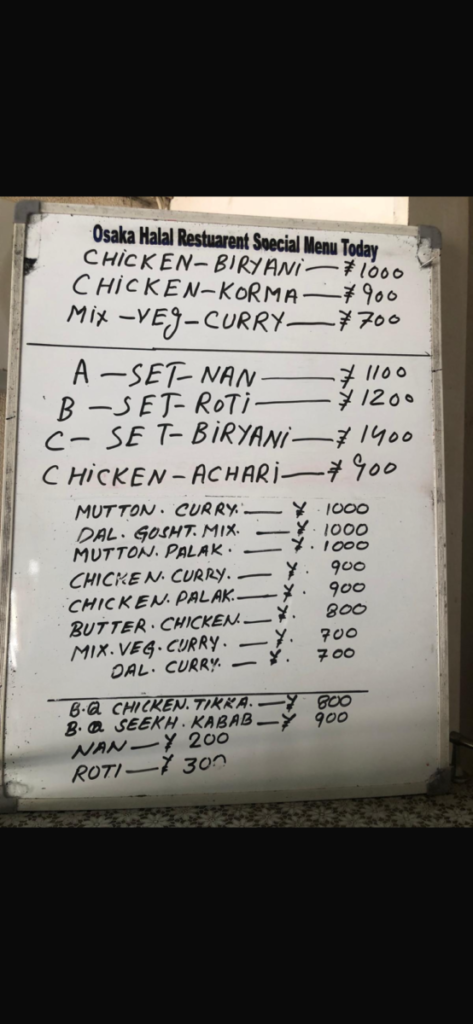 Osaka Halal Restuarent Special Menu Today
CHICKEN-BIRYANI-¥1000
CHICKEN-KORMA-¥900
MIX-VEG-CURRY-¥700
A-SET-NAN-¥1100
B-SET-ROTI-¥1200
C-SET-BIRYANI-¥1400
CHICKEN-ACHARI-¥900
MUTTON. CURRY.-¥ 1000
DAL. GOSHT. MIX.-¥ 1000
MUTTON. PALAK.-¥. 1000
CHICKEN. CURRY.-¥. 900
CHICKEN. PALAK.-¥. 900
BUTTER. CHICKEN.-¥. 800
MIX. VEG. CURRY.-¥. 700
DAL. CURRY.-¥. 700
B.Q CHICKEN. TIKKA.-¥ 800
B.Q SEEKH. KABAB-¥ 900
NAN-¥ 200
ROTI-¥ 300